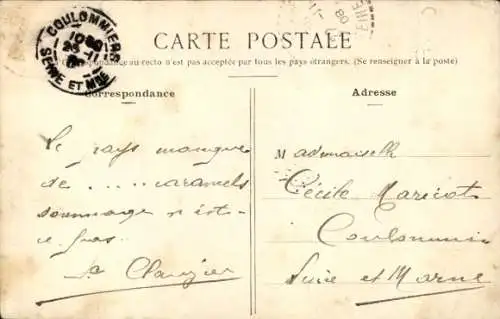 COULOMMIERS
SEINE ET MNE
CARTE POSTALE
Correspondance au recto n'est pas acceptée par tous les pays étrangers. (Se renseigner à la poste)
Correspondance
Adresse
Le pays manque
de .... caramels
dommage n'est-
ce pas.
Mademoiselle
Cécile Maricot
Coulommiers
Seine et Marne